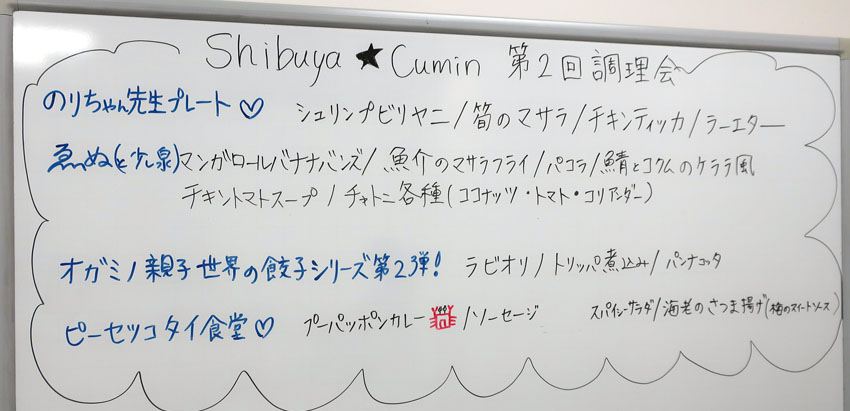 Shibuya ★ Cumin 第2回調理会
のりちゃん先生プレート♡ シュリンプビリヤニ/筍のマサラ/チキンティッカ/ラーエター
ゑぬ(と少し泉) マンガロールバナナバンズ/魚介のマサラフライ/パコラ/鯖とコクムのケララ風
チキントマトスープ/チャトニ各種(ココナッツ・トマト・コリアンダー)
オガミノ親子世界の餃子シリーズ第2弾! ラビオリ/トリッパ煮込み/パンナコッタ
ピーセツコタイ食堂♡ プーパッポンカレー/ソーセージ スパイシーサラダ/海老のさつま揚げ(梅のスイートソース)